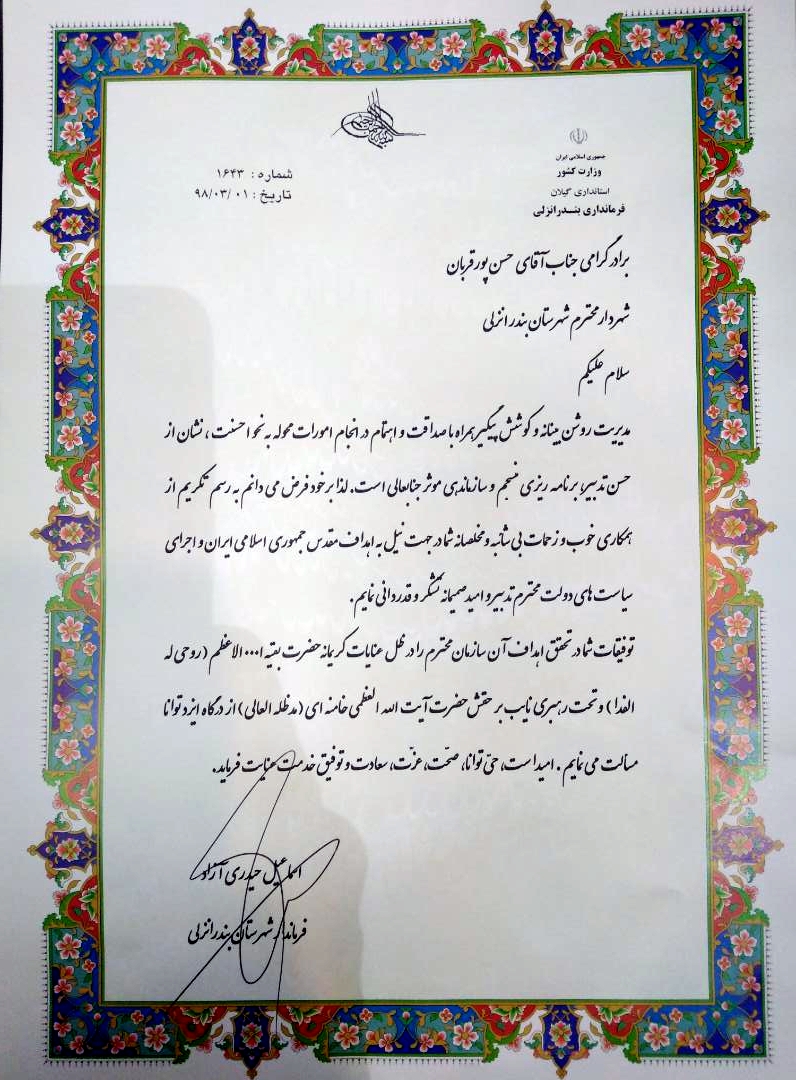 جمهوری اسلامی ایران
وزارت کشور
استانداری گیلان
فرمانداری بندرانزلی
شماره : ۱۶۴۳
تاریخ : ۹۸/۰۳/۰۱
برادر گرامی جناب آقای حسن پور قربان
شهردار محترم شهرستان بندر انزلی
سلام علیکم
مدیریت روشن بینانه و کوشش پیگیر همراه با صداقت و اهتمام در انجام امورات محوله به نحو احسنت ، نشان از
حسن تدبیر، برنامه ریزی منسجم و سازماندهی موثر جنابعالی است. لذا بر خود فرض می دانم به رسم تکریم از
همکاری خوب و زحمات بی شائبه و مخلصانه شما در جهت نیل به اهداف مقدس جمهوری اسلامی ایران و اجرای
سیاست های دولت محترم تدبیر و امید صمیمانه تشکر و قدردانی نمایم.
توفیقات شما در تحقق اهداف آن سازمان محترم را در ظل عنایات کریمانه حضرت بقیه ا... الاعظم (روحی له
الفدا) و تحت رهبری نایب بر حقش حضرت آیت الله العظمی خامنه ای (مدظله العالی) از درگاه ایزد توانا
مسألت می نمایم . امید است، حیّ توانا، صحّت، عزّت، سعادت و توفیق خدمت عنایت فرماید.
اسماعیل حیدری آزاد
فرماندار شهرستان بندرانزلی